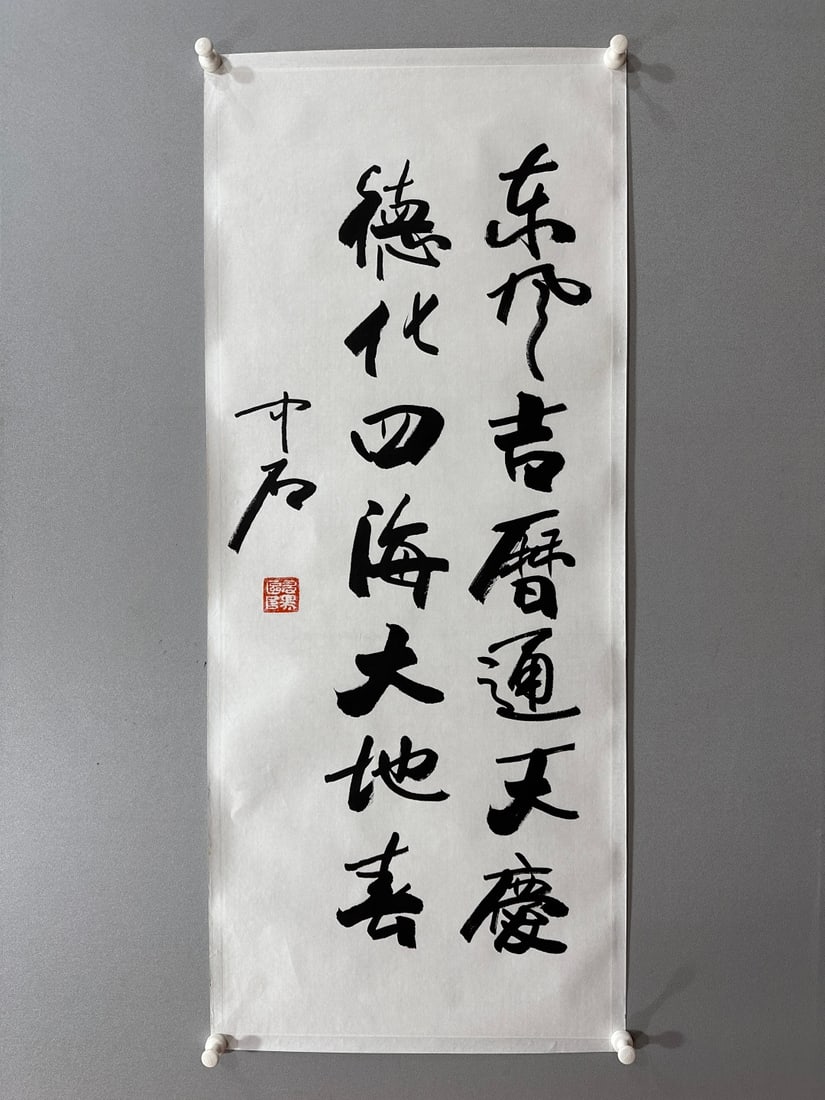 东风吉曆通天慶
德化四海大地春
中石